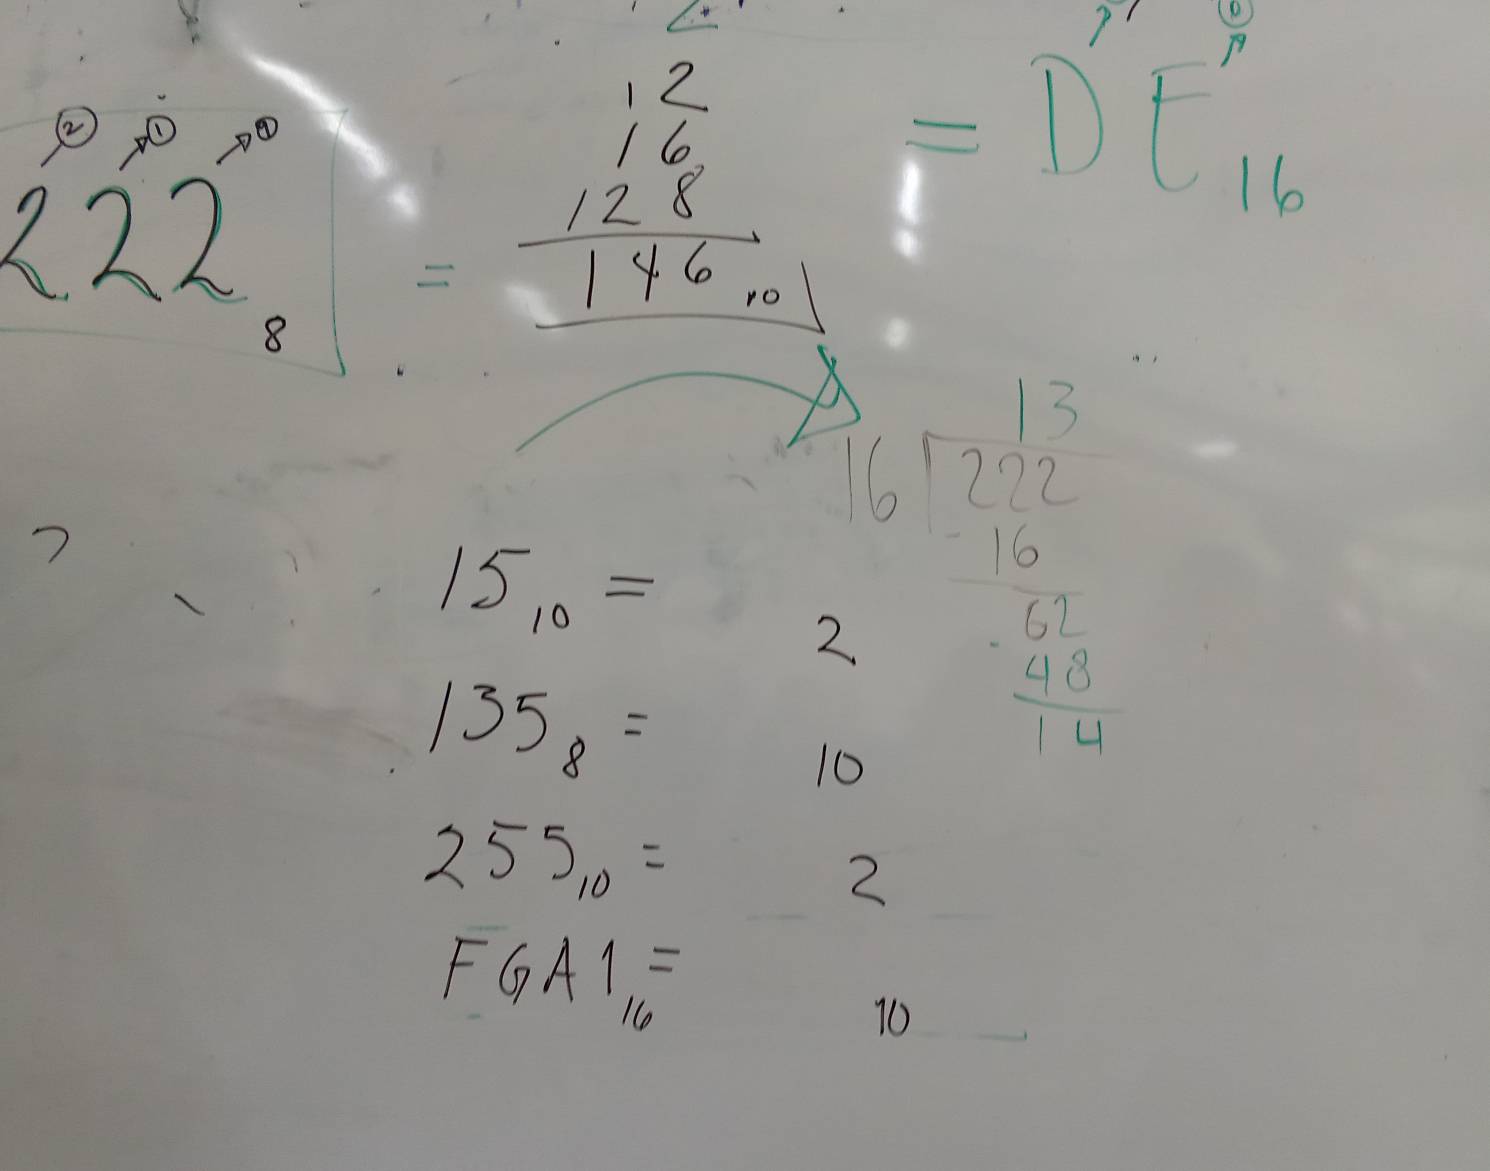 2 1 0
222 8 =
12
16
128
146 10
= DE 16
13
16 222
- 16
62
- 48
14
15 10 = 2
135 8 = 10
255 10 = 2
FGA1 16 = 10